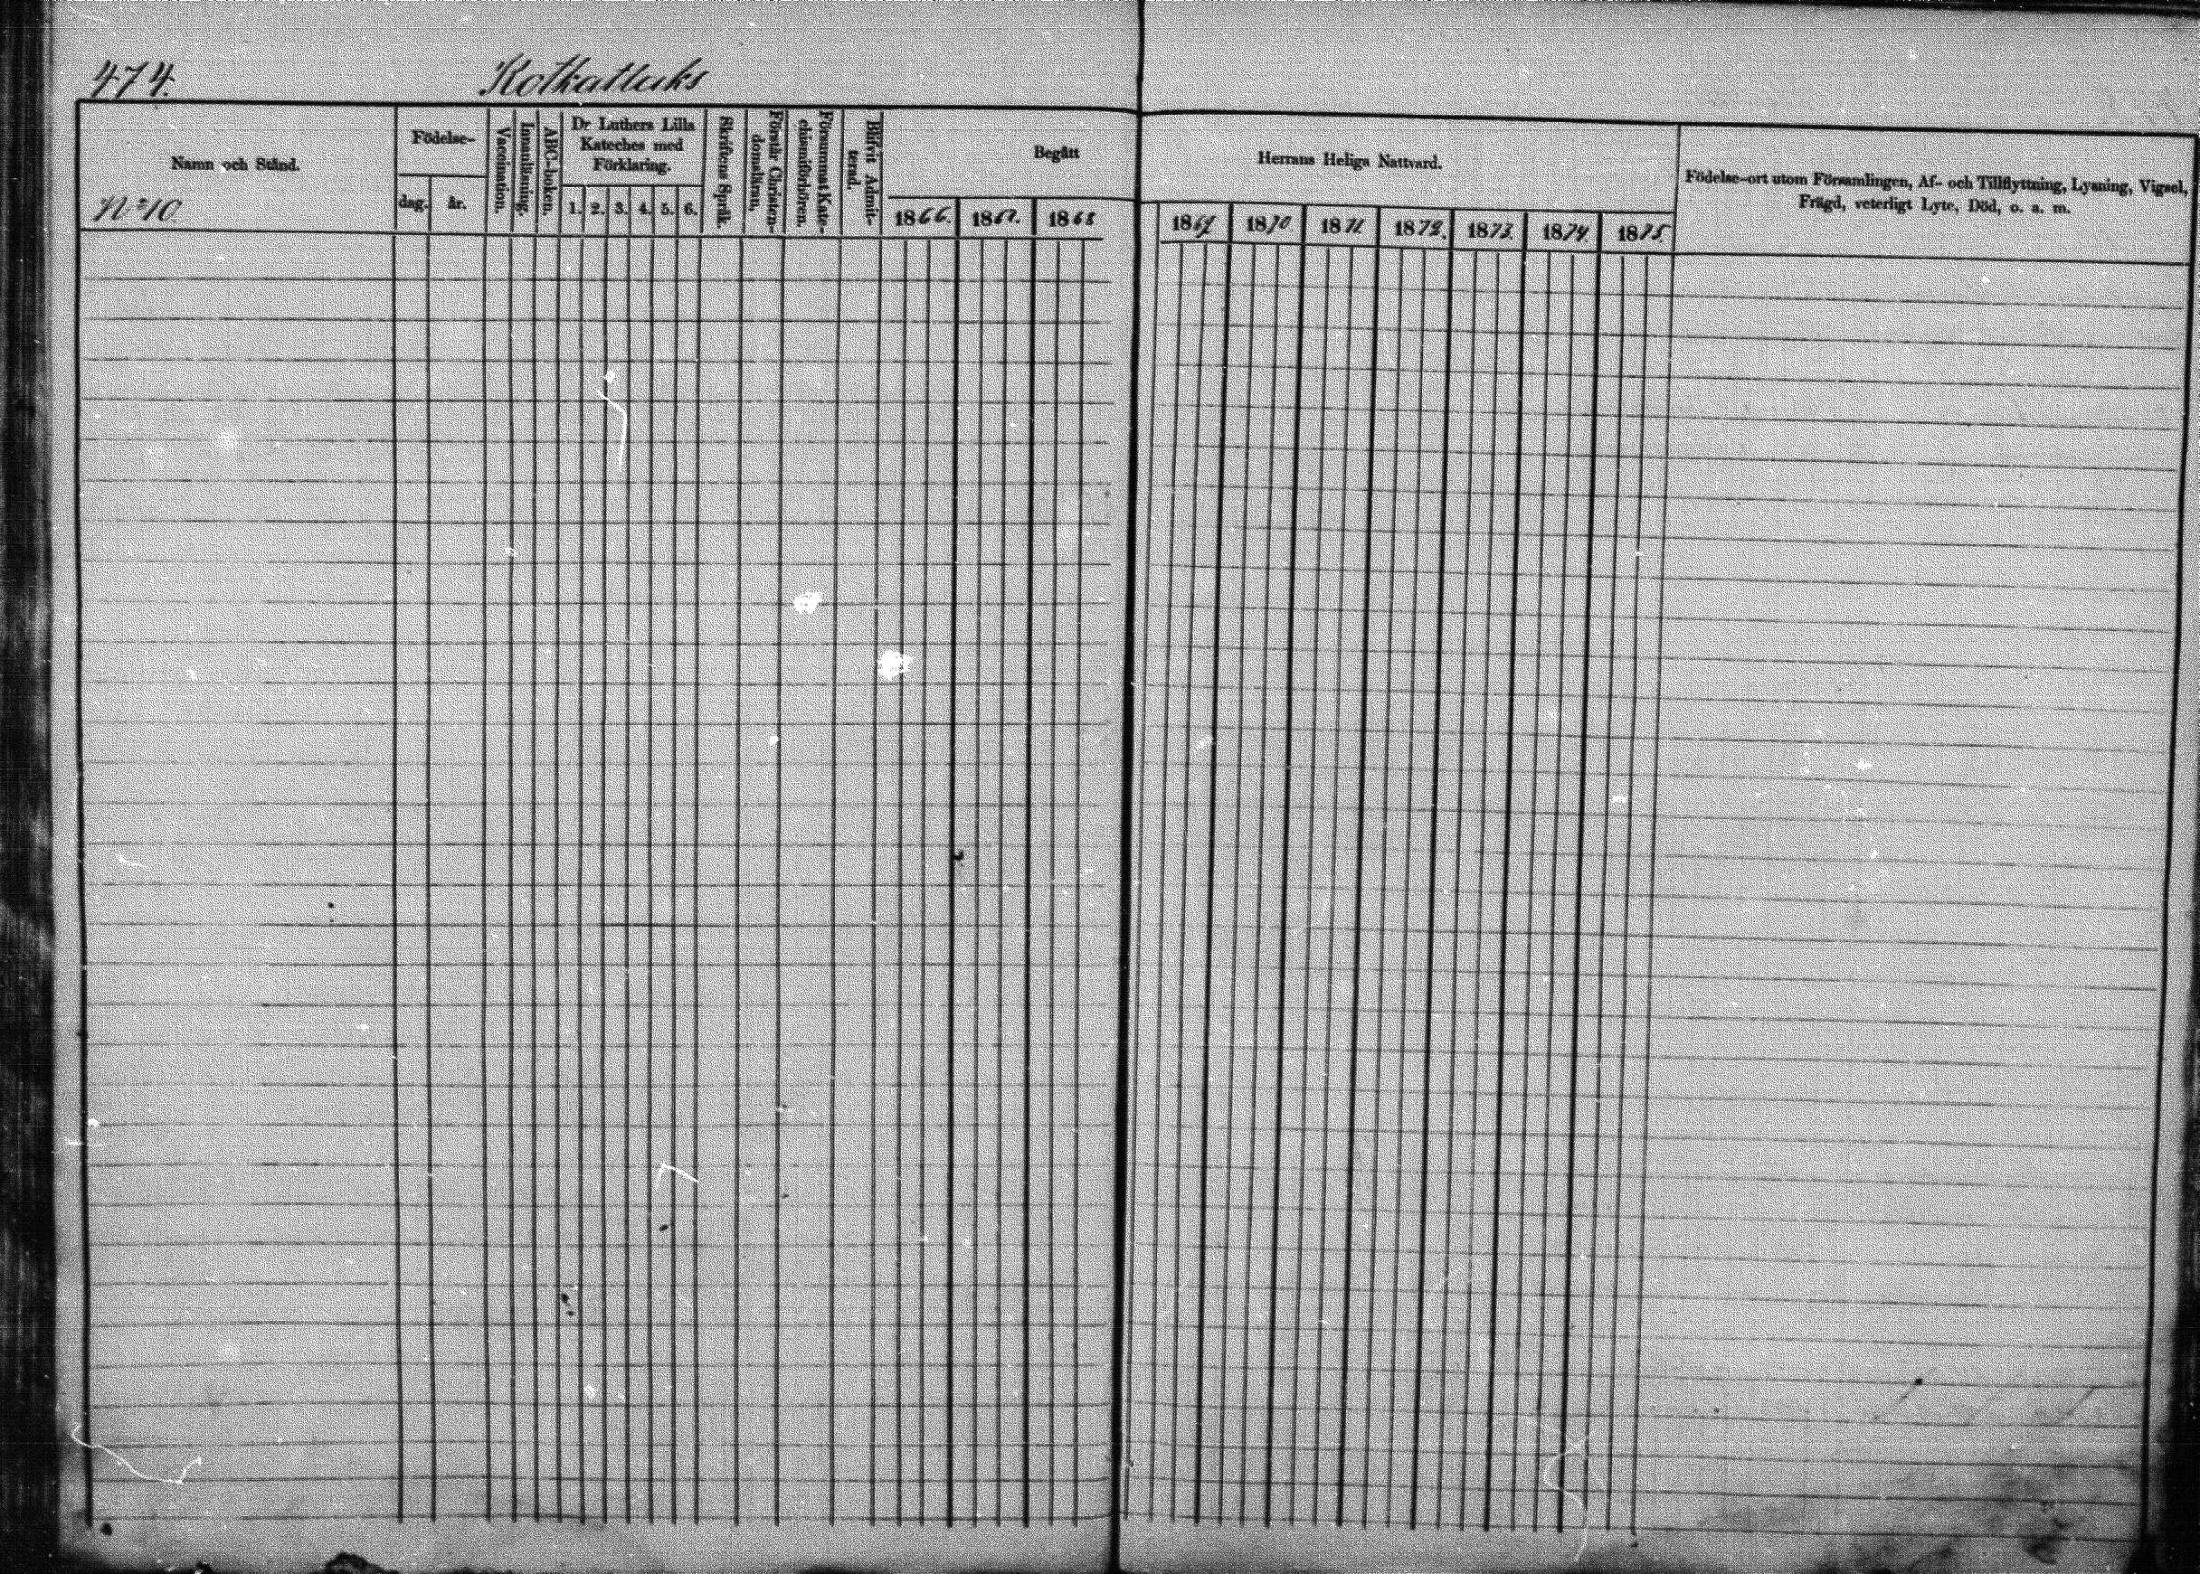 474. Kotkatluks
Namn och Stånd.
N:o 10
Födelse-
dag. år.
Vaccination.
Innanläsning.
ABC-boken.
Dr Luthers Lilla
Kateches med
Förklaring.
1. 2. 3. 4. 5. 6.
Skriftens Språk.
Förstår Christen-
domsläran,
Försummat Kate-
chismiförhören.
Blifvit Admit-
terad.
Begått Herrans Heliga Nattvard.
1866. 1867. 1868 1869 1870. 1871 1872. 1873. 1874. 1875.
Födelse-ort utom Församlingen, Af- och Tillflyttning, Lysning, Vigsel,
Frägd, veterligt Lyte, Död, o. a. m.